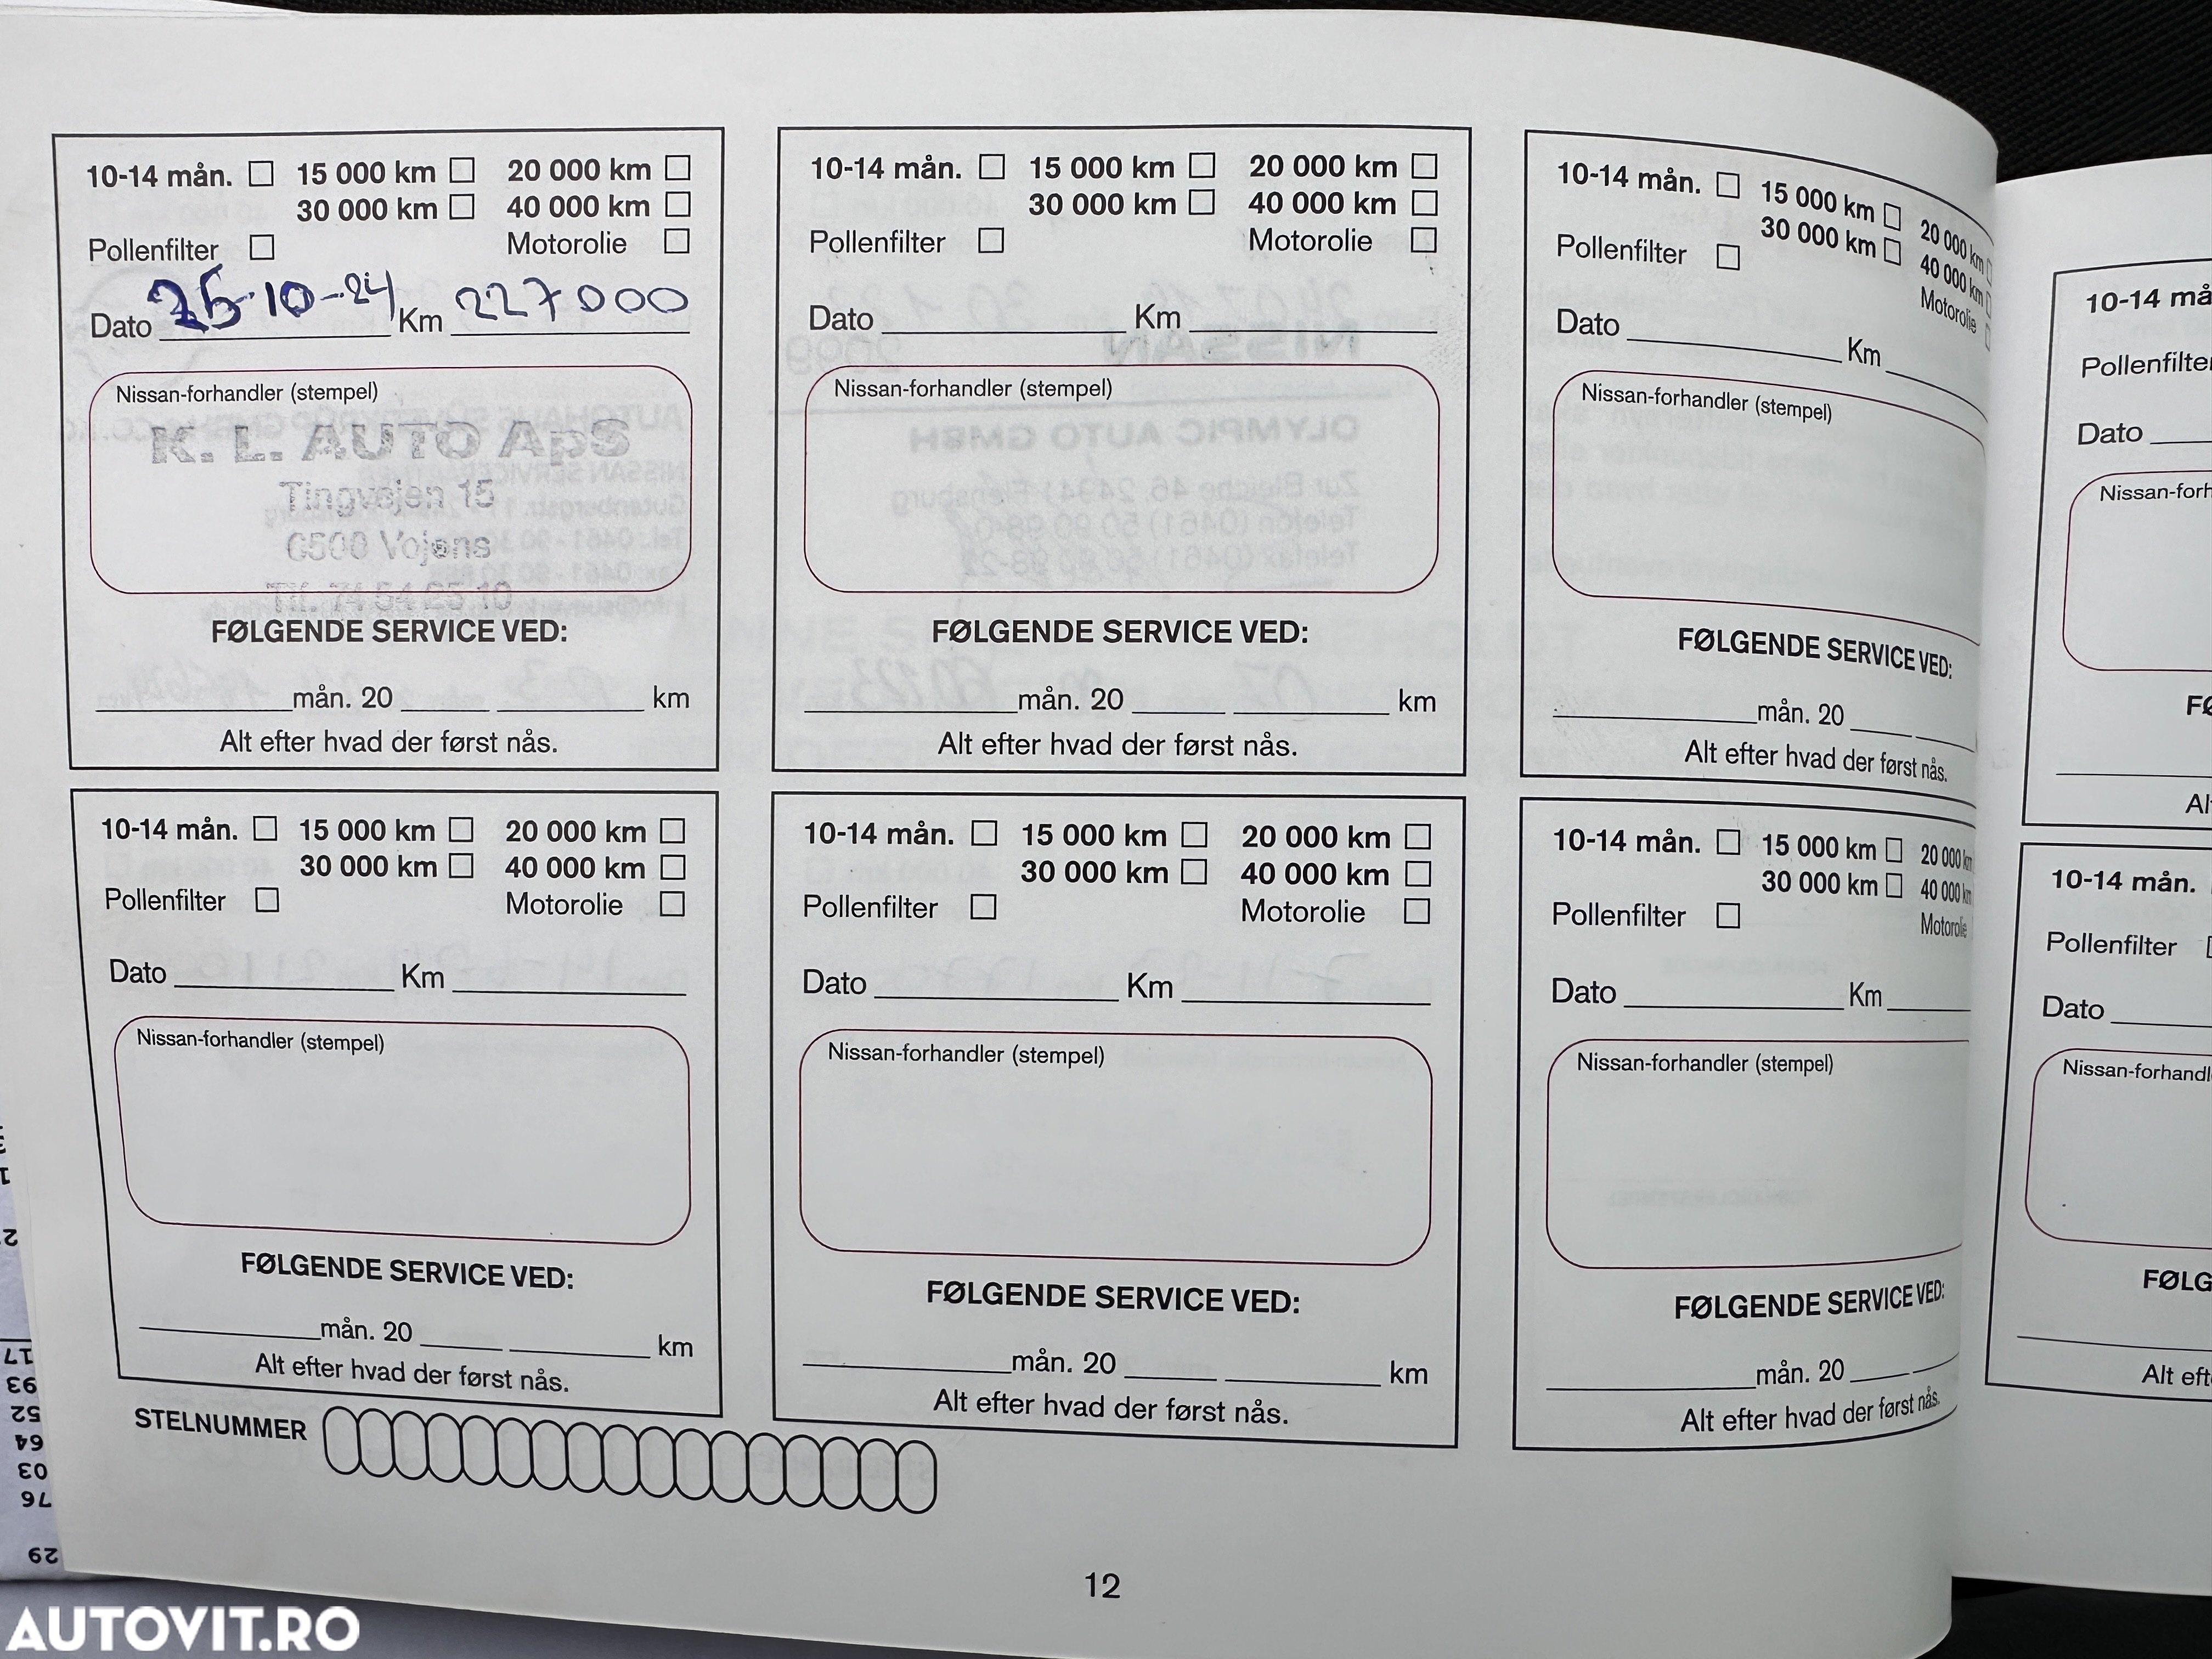 10-14 mån. 15 000 km 20 000 km
30 000 km 40 000 km
Pollenfilter Motorolie
Dato 26-10-24 Km 227000
Nissan-forhandler (stempel)
K. L. AUTO ApS
Tingvejen 15
6500 Vojens
Tlf. 74 54 25 10
FØLGENDE SERVICE VED:
mån. 20 km
Alt efter hvad der først nås.
10-14 mån. 15 000 km 20 000 km
30 000 km 40 000 km
Pollenfilter Motorolie
Dato Km
Nissan-forhandler (stempel)
FØLGENDE SERVICE VED:
mån. 20 km
Alt efter hvad der først nås.
10-14 mån. 15 000 km 20 000 km
30 000 km 40 000 km
Pollenfilter Motorolie
Dato Km
Nissan-forhandler (stempel)
FØLGENDE SERVICE VED:
mån. 20
Alt efter hvad der først nås.
10-14 må
Pollenfilte
Dato
Nissan-forh
FØ
Al
10-14 mån. 15 000 km 20 000 km
30 000 km 40 000 km
Pollenfilter Motorolie
Dato Km
Nissan-forhandler (stempel)
FØLGENDE SERVICE VED:
mån. 20 km
Alt efter hvad der først nås.
10-14 mån. 15 000 km 20 000 km
30 000 km 40 000 km
Pollenfilter Motorolie
Dato Km
Nissan-forhandler (stempel)
FØLGENDE SERVICE VED:
mån. 20 km
Alt efter hvad der først nås.
10-14 mån. 15 000 km 20 000 km
30 000 km 40 000 km
Pollenfilter Motorolie
Dato Km
Nissan-forhandler (stempel)
FØLGENDE SERVICE VED:
mån. 20
Alt efter hvad der først nås.
10-14 mån.
Pollenfilter
Dato
Nissan-forhandl
FØLG
Alt eft
STELNUMMER
12
17
93
52
64
03
76
29
AUTOVIT.RO